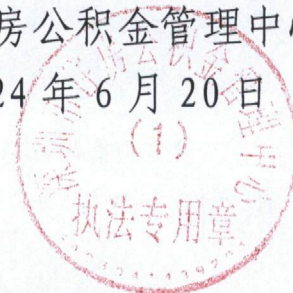 房公积金管理中心
24年6月20日
住房公积金管理中心
(1)
执法专用章